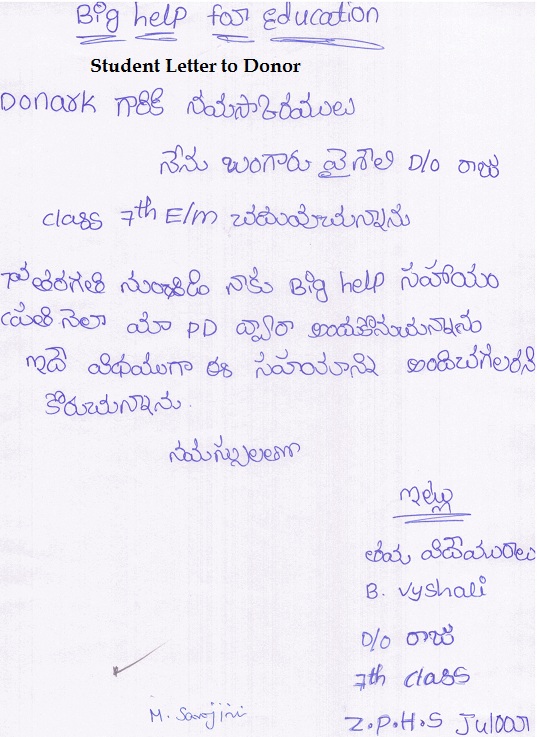 Big help for Education
Student Letter to Donor
Donark గారికి నమస్కారములు
నేను బంగారు వైశాలి D/o రాజు
class 7th E/m చదువుచున్నాను
7వ తరగతి నుండి నాకు Big help సహాయం
ప్రతి నెలా మా PD ద్వారా అందుకొనుచున్నాను
ఇదే విధముగా ఈ సహాయాన్ని అందించగలరని
కోరుచున్నాను.
నమస్సులతో
ఇట్లు
తమ విధేయురాలు
B. Vyshali
D/o రాజు
7th class
M. Sarojini
Z.P.H.S